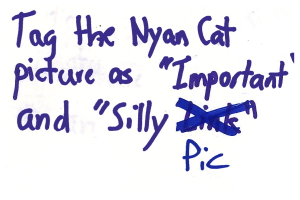 Tag the Nyan Cat
picture as "Important"
and "Silly Links"
Pic